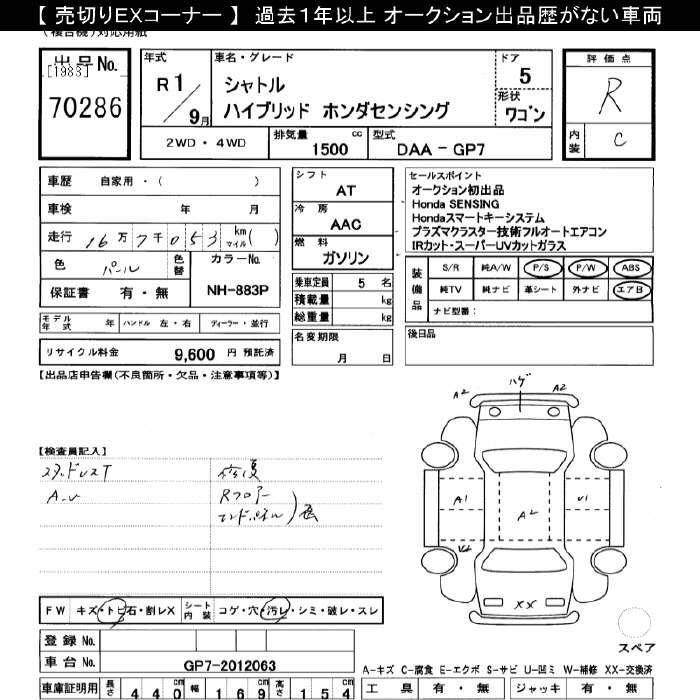 【 売切りEXコーナー 】 過去1年以上 オークション出品歴がない車両
出品No.
[1983]
70286
年式
R1/9月
車名・グレード
シャトル
ハイブリッド ホンダセンシング
ドア
5
形状
ワゴン
評価点
R
内装
C
2WD・4WD
排気量
1500 cc
型式
DAA-GP7
車歴 自家用・( )
車検 年 月
走行 16万7千053 km マイル ( )
色 パール
色替
カラーNo.
NH-883P
保証書 有・無
モデル年式 年 ハンドル 左・右 ディーラー・並行
リサイクル料金 9,600 円 預託済
シフト
AT
冷房
AAC
燃料
ガソリン
乗車定員 5 名
積載量 kg
総重量 kg
名変期限
月 日
セールスポイント
オークション初出品
Honda SENSING
Hondaスマートキーシステム
プラズマクラスター技術フルオートエアコン
IRカット・スーパーUVカットガラス
装備品
S/R 純A/W P/S P/W ABS
純TV 純ナビ 革シート 外ナビ エアB
ナビ型番:
後日品
【出品店申告欄(不良箇所・欠品・注意事項等)】
【検査員記入】
スタッドレスT
修復
Rフロアー
エンドパネル
A2
ハゲ
A2
A1
A2
U1
XX
FW キズ・トビ石・割レX
シート内装 コゲ・穴・汚レ・シミ・破レ・スレ
スペア
登録 No.
車台 No. GP7-2012063
A-キズ C-腐食 E-エクボ S-サビ U-凹ミ W-補修 XX-交換済
車庫証明用 長さ 440 cm 幅 169 cm 高さ 154 cm
工具 有・無 ジャッキ 有・無